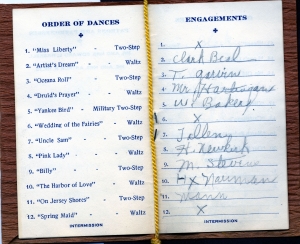 ORDER OF DANCES
1. "Miss Liberty" - Two-Step
2. "Artist's Dream" - Waltz
3. "Oceana Roll" - Two-Step
4. "Druid's Prayer" - Waltz
5. "Yankee Bird" - Military Two-Step
6. "Wedding of the Fairies" - Waltz
7. "Uncle Sam" - Two-Step
8. "Pink Lady" - Waltz
9. "Billy" - Two-Step
10. "The Harbor of Love" - Waltz
11. "On Jersey Shores" - Two-Step
12. "Spring Maid" - Waltz
INTERMISSION
ENGAGEMENTS
1. X
2. Clark Beal
3. T.
4. Mr
5. W.
6. X
7.
8. H.
9. M. Stevens
10. H X Newman
11.
12. X
INTERMISSION